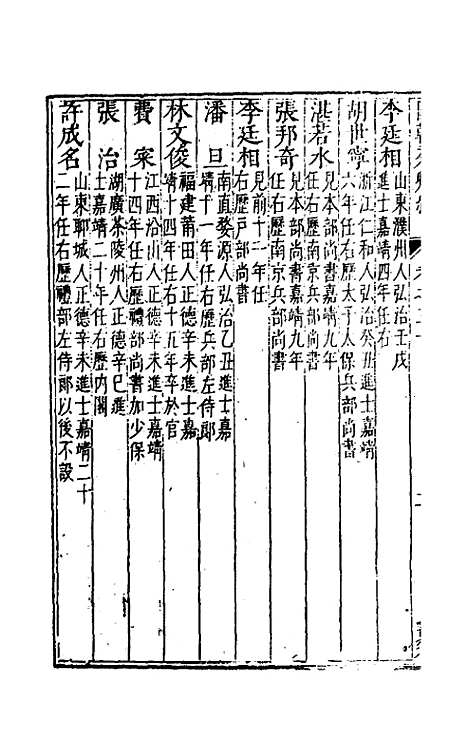 李廷相 山東濮州人弘治壬戌
進士嘉靖四年任右
胡世寧 浙江仁和人弘治癸丑進士嘉靖
六年任右歷太子太保兵部尚書
湛若水 見本部尚書嘉靖九年
任右歷南京兵部尚書
張邦奇 見本部尚書嘉靖九年
任右歷南京兵部尚書
李廷相 見前十一年任
右歷戶部尚書
潘旦 南直婺源人弘治乙丑進士嘉
靖十一年任右歷兵部左侍郎
林文俊 福建莆田人正德辛未進士嘉
靖十四年任右十五年卒於官
費寀 江西鉛山人正德辛未進士嘉靖
十四年任右歷禮部尚書加少保
張治 湖廣茶陵州人正德辛巳進
士嘉靖二十年任右歷內閣
許成名 山東聊城人正德辛未進士嘉靖二十
二年任右歷禮部左侍郎以後不設